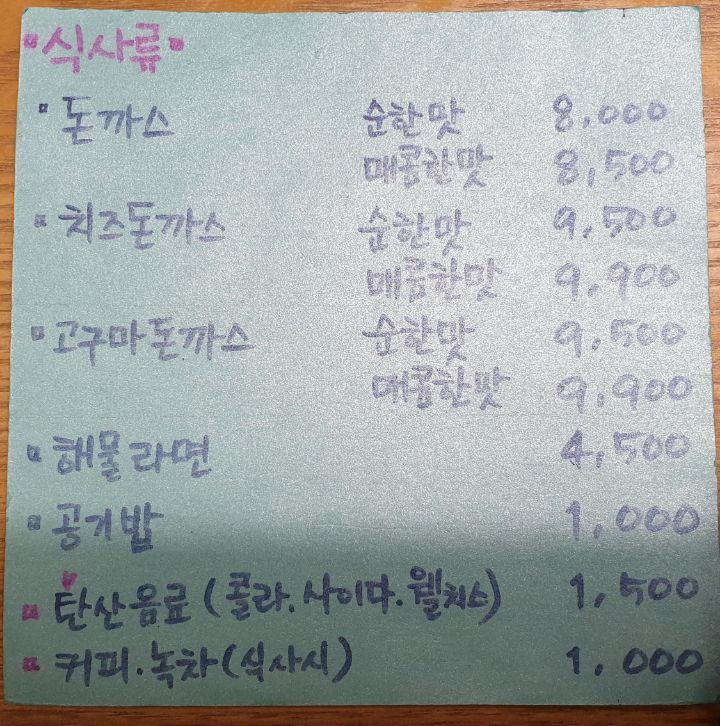 ▪식사류▪
▪돈까스 순한맛 8,000
매콤한맛 8,500
▪치즈돈까스 순한맛 9,500
매콤한맛 9,900
▪고구마돈까스 순한맛 9,500
매콤한맛 9,900
▪해물라면 4,500
▪공기밥 1,000
▪탄산음료(콜라.사이다.웰치스) 1,500
▪커피.녹차(식사시) 1,000